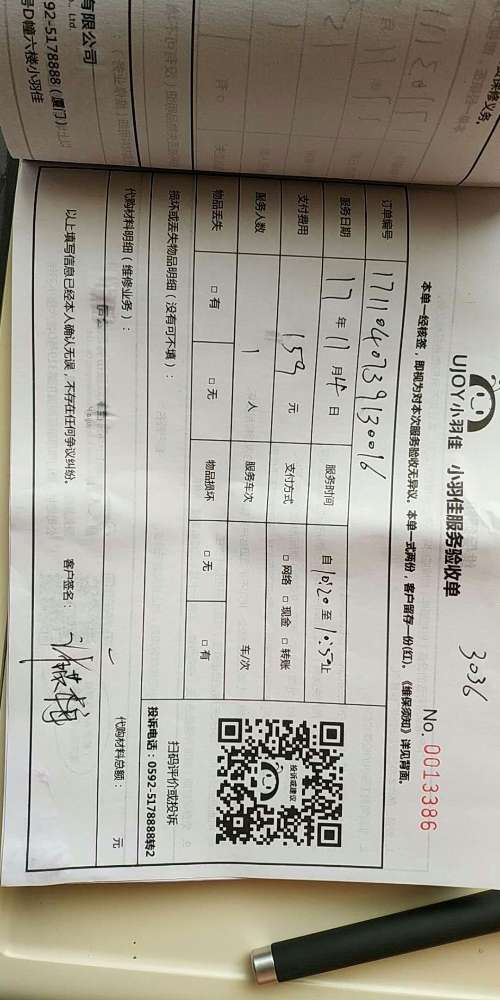 有限公司
., Ltd.
92-5178888（厦门）
号D幢六楼小羽佳
保修义务。
3036
UJOY小羽佳 小羽佳服务验收单
No. 0013386
本单一经核签，即视为对本次服务验收无异议。本单一式两份，客户留存一份(红)。《维保须知》详见背面。
订单编号 1711040739130016
服务日期 17 年 11 月 4 日 服务时间 自 10:20 至 10:50 止
支付费用 159 元 支付方式 □ 网络 □ 现金 □ 转账
服务人数 1 人 服务车次 车/次
物品丢失 □ 有 □ 无 物品损坏 □ 无 □ 有
投诉或建议
扫码评价或投诉
投诉电话：0592-5178888转2
损坏或丢失物品明细（没有可不填）：
代购材料明细（维修业务）：
代购材料总额： 元
以上填写信息已经本人确认无误，不存在任何争议纠纷。 客户签名：